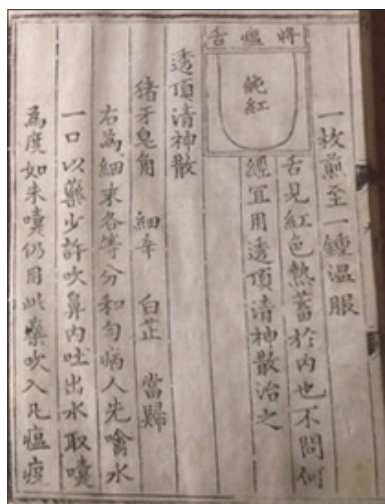 一枚煎至一鍾温服
將瘟舌
純紅
舌見紅色熱蓄於内也不問何
經宜用透頂清神散治之
透頂清神散
猪牙皂角 細辛 白芷 當歸
右為細末各等分和勻病人先噙水
一口以藥少許吹鼻内吐出水取嚏
為度如未嚏仍用此藥吹入凡瘟疫